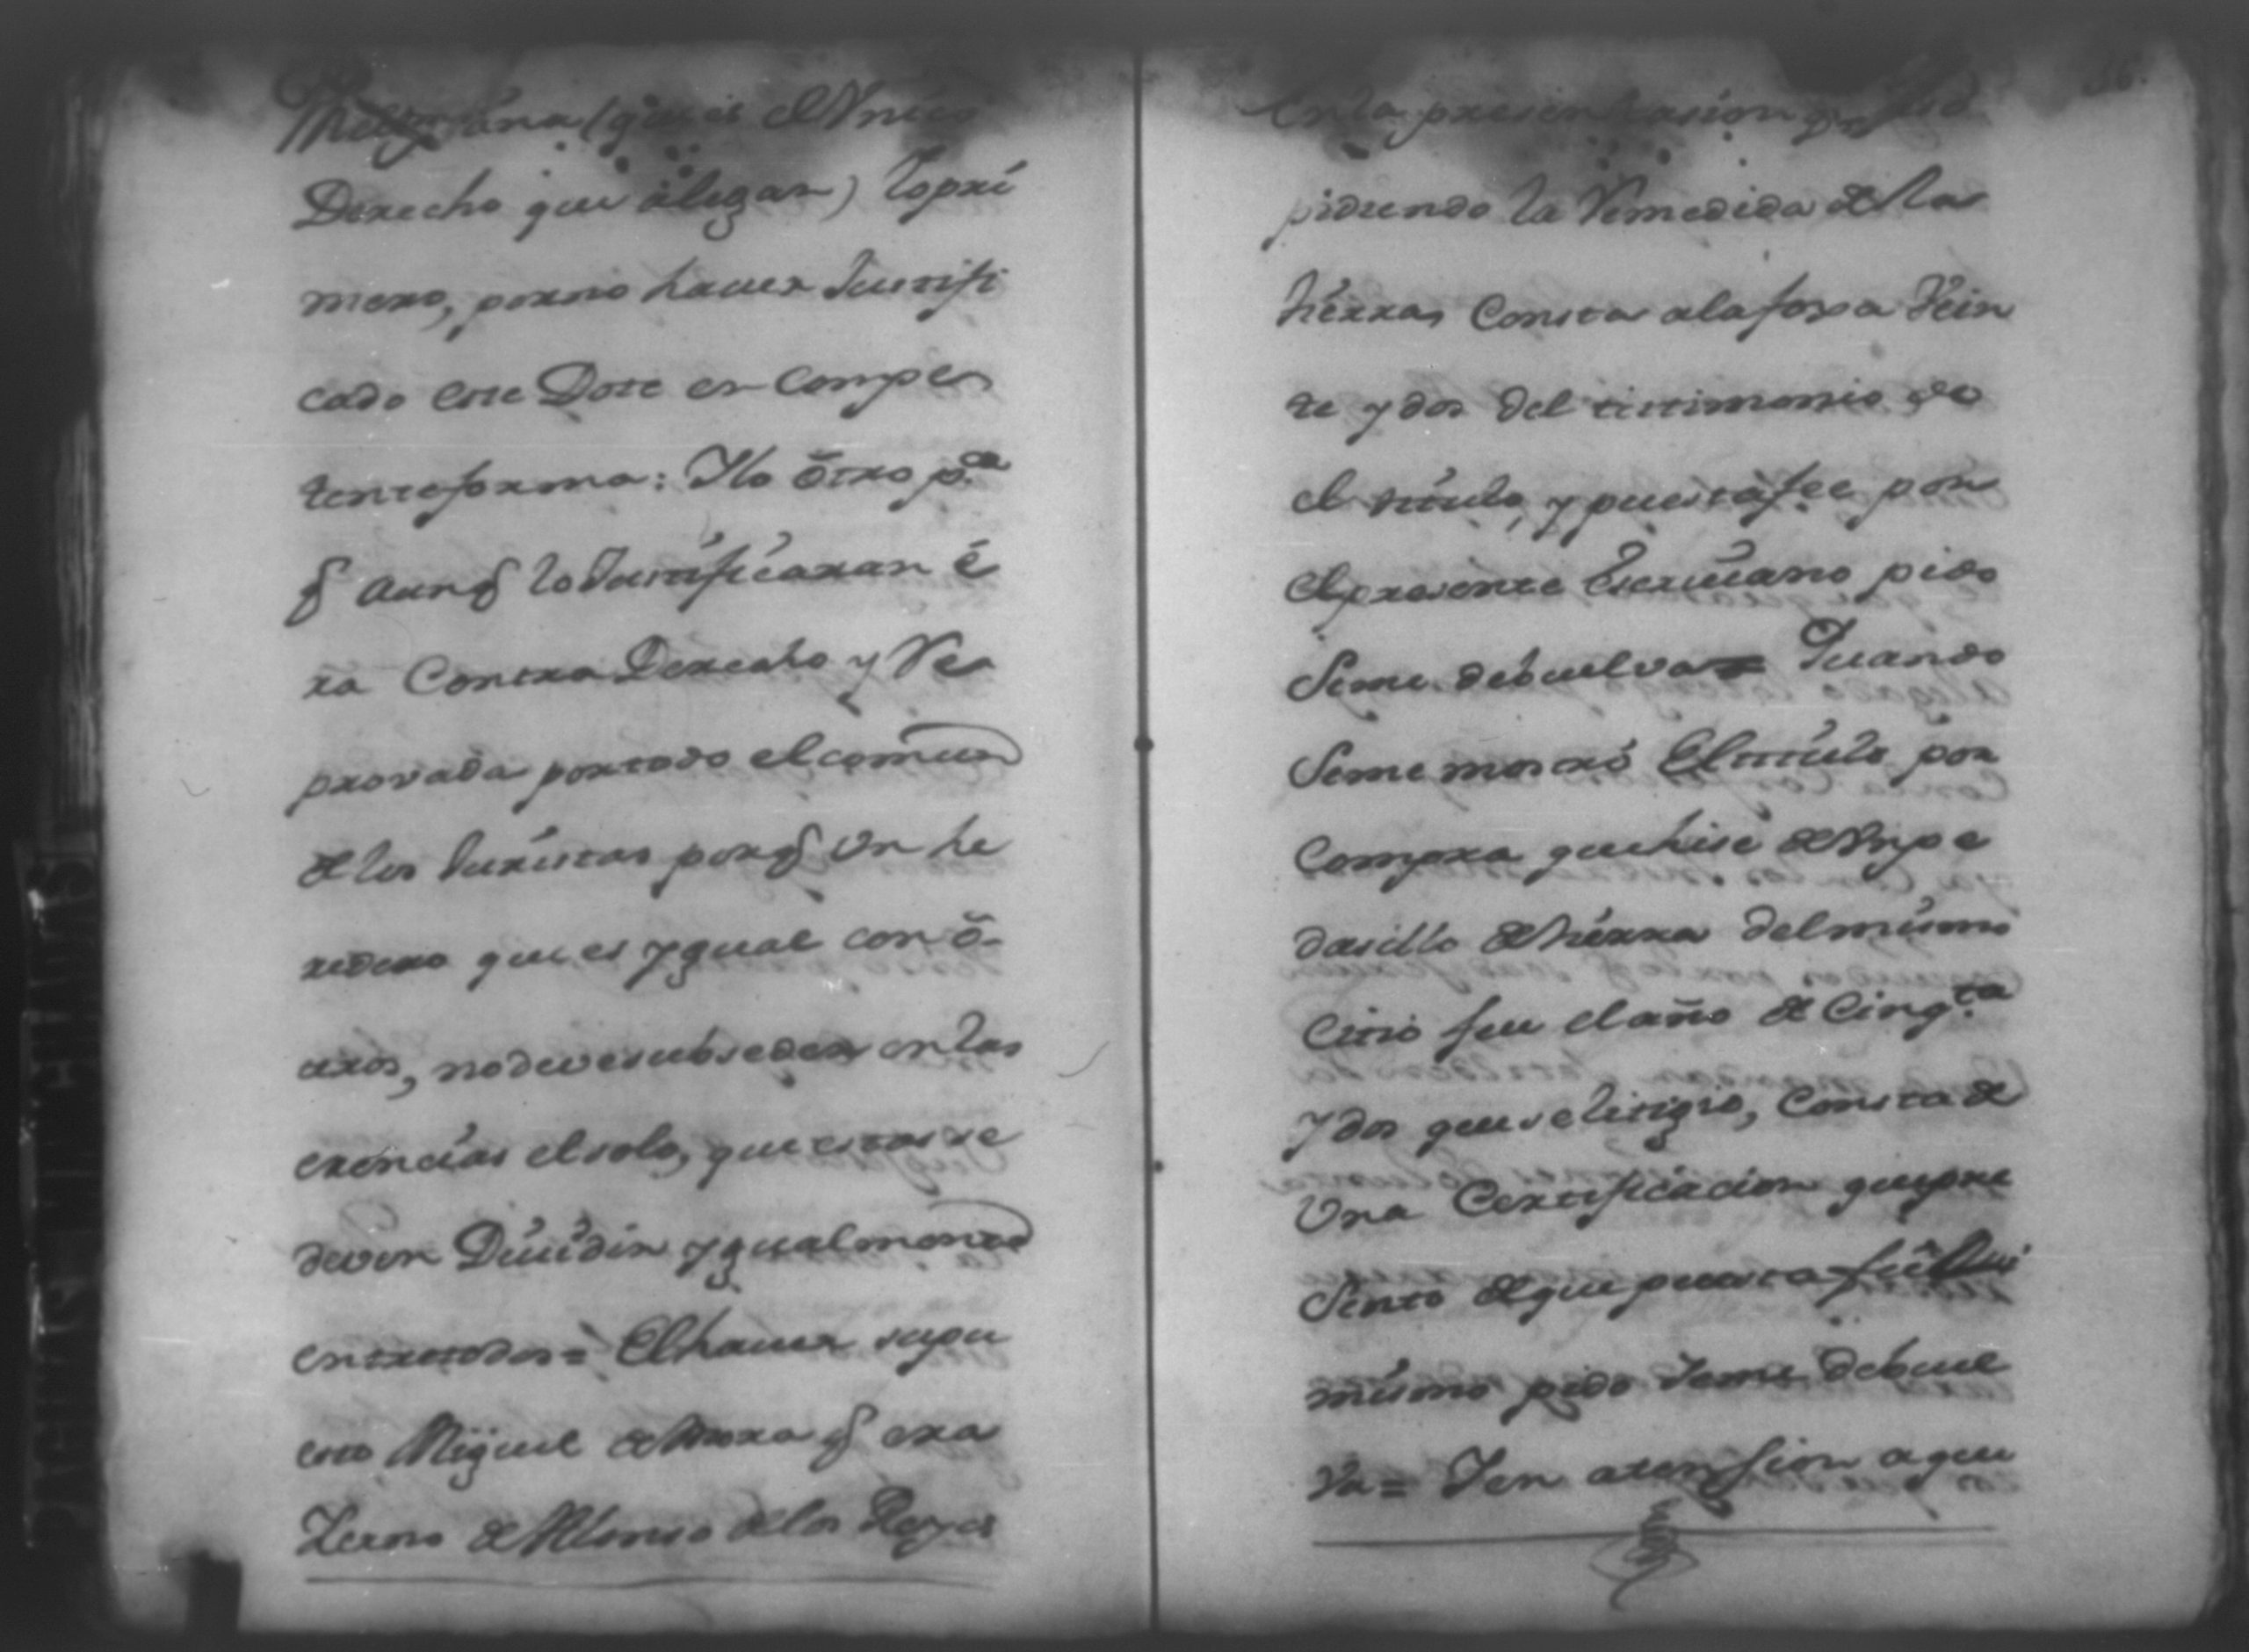 (que es el Vnico
Derecho que alegan) lo pri
mero, por no hauer Justifi
cado este Dote en Compe
tente forma: Y lo ótro p.ª
q aunq lo Justificaran é
ra Contra Derecho y Re
provada por todo el comun
de los Juristas porq Vn he
redero que es ygual con ó
tros, no deve subseder en las
erencias el solo, que estas se
deven Diuidir ygualmente
entre todos = El hauer supu
esto Miguel de Mora q era
Yerno de Alonso de los Reyes
En la presentasion
pidiendo la Remedida de las
tierras Consta a la foxa Vein
te y dos del testimonio de
el titulo, y puesta fee por
el presente Escriuano pido
Seme debuelva = Quando
Seme mostró El titulo por
Compra que hise de Vn pe
dasillo de tierra del mismo
Citio fue el año de Cinq.ta
y dos que se litigio, Consta de
Vna Certificacion que pre
Sento de que puesta
mismo pido Seme debuel
va = Y en atension a que